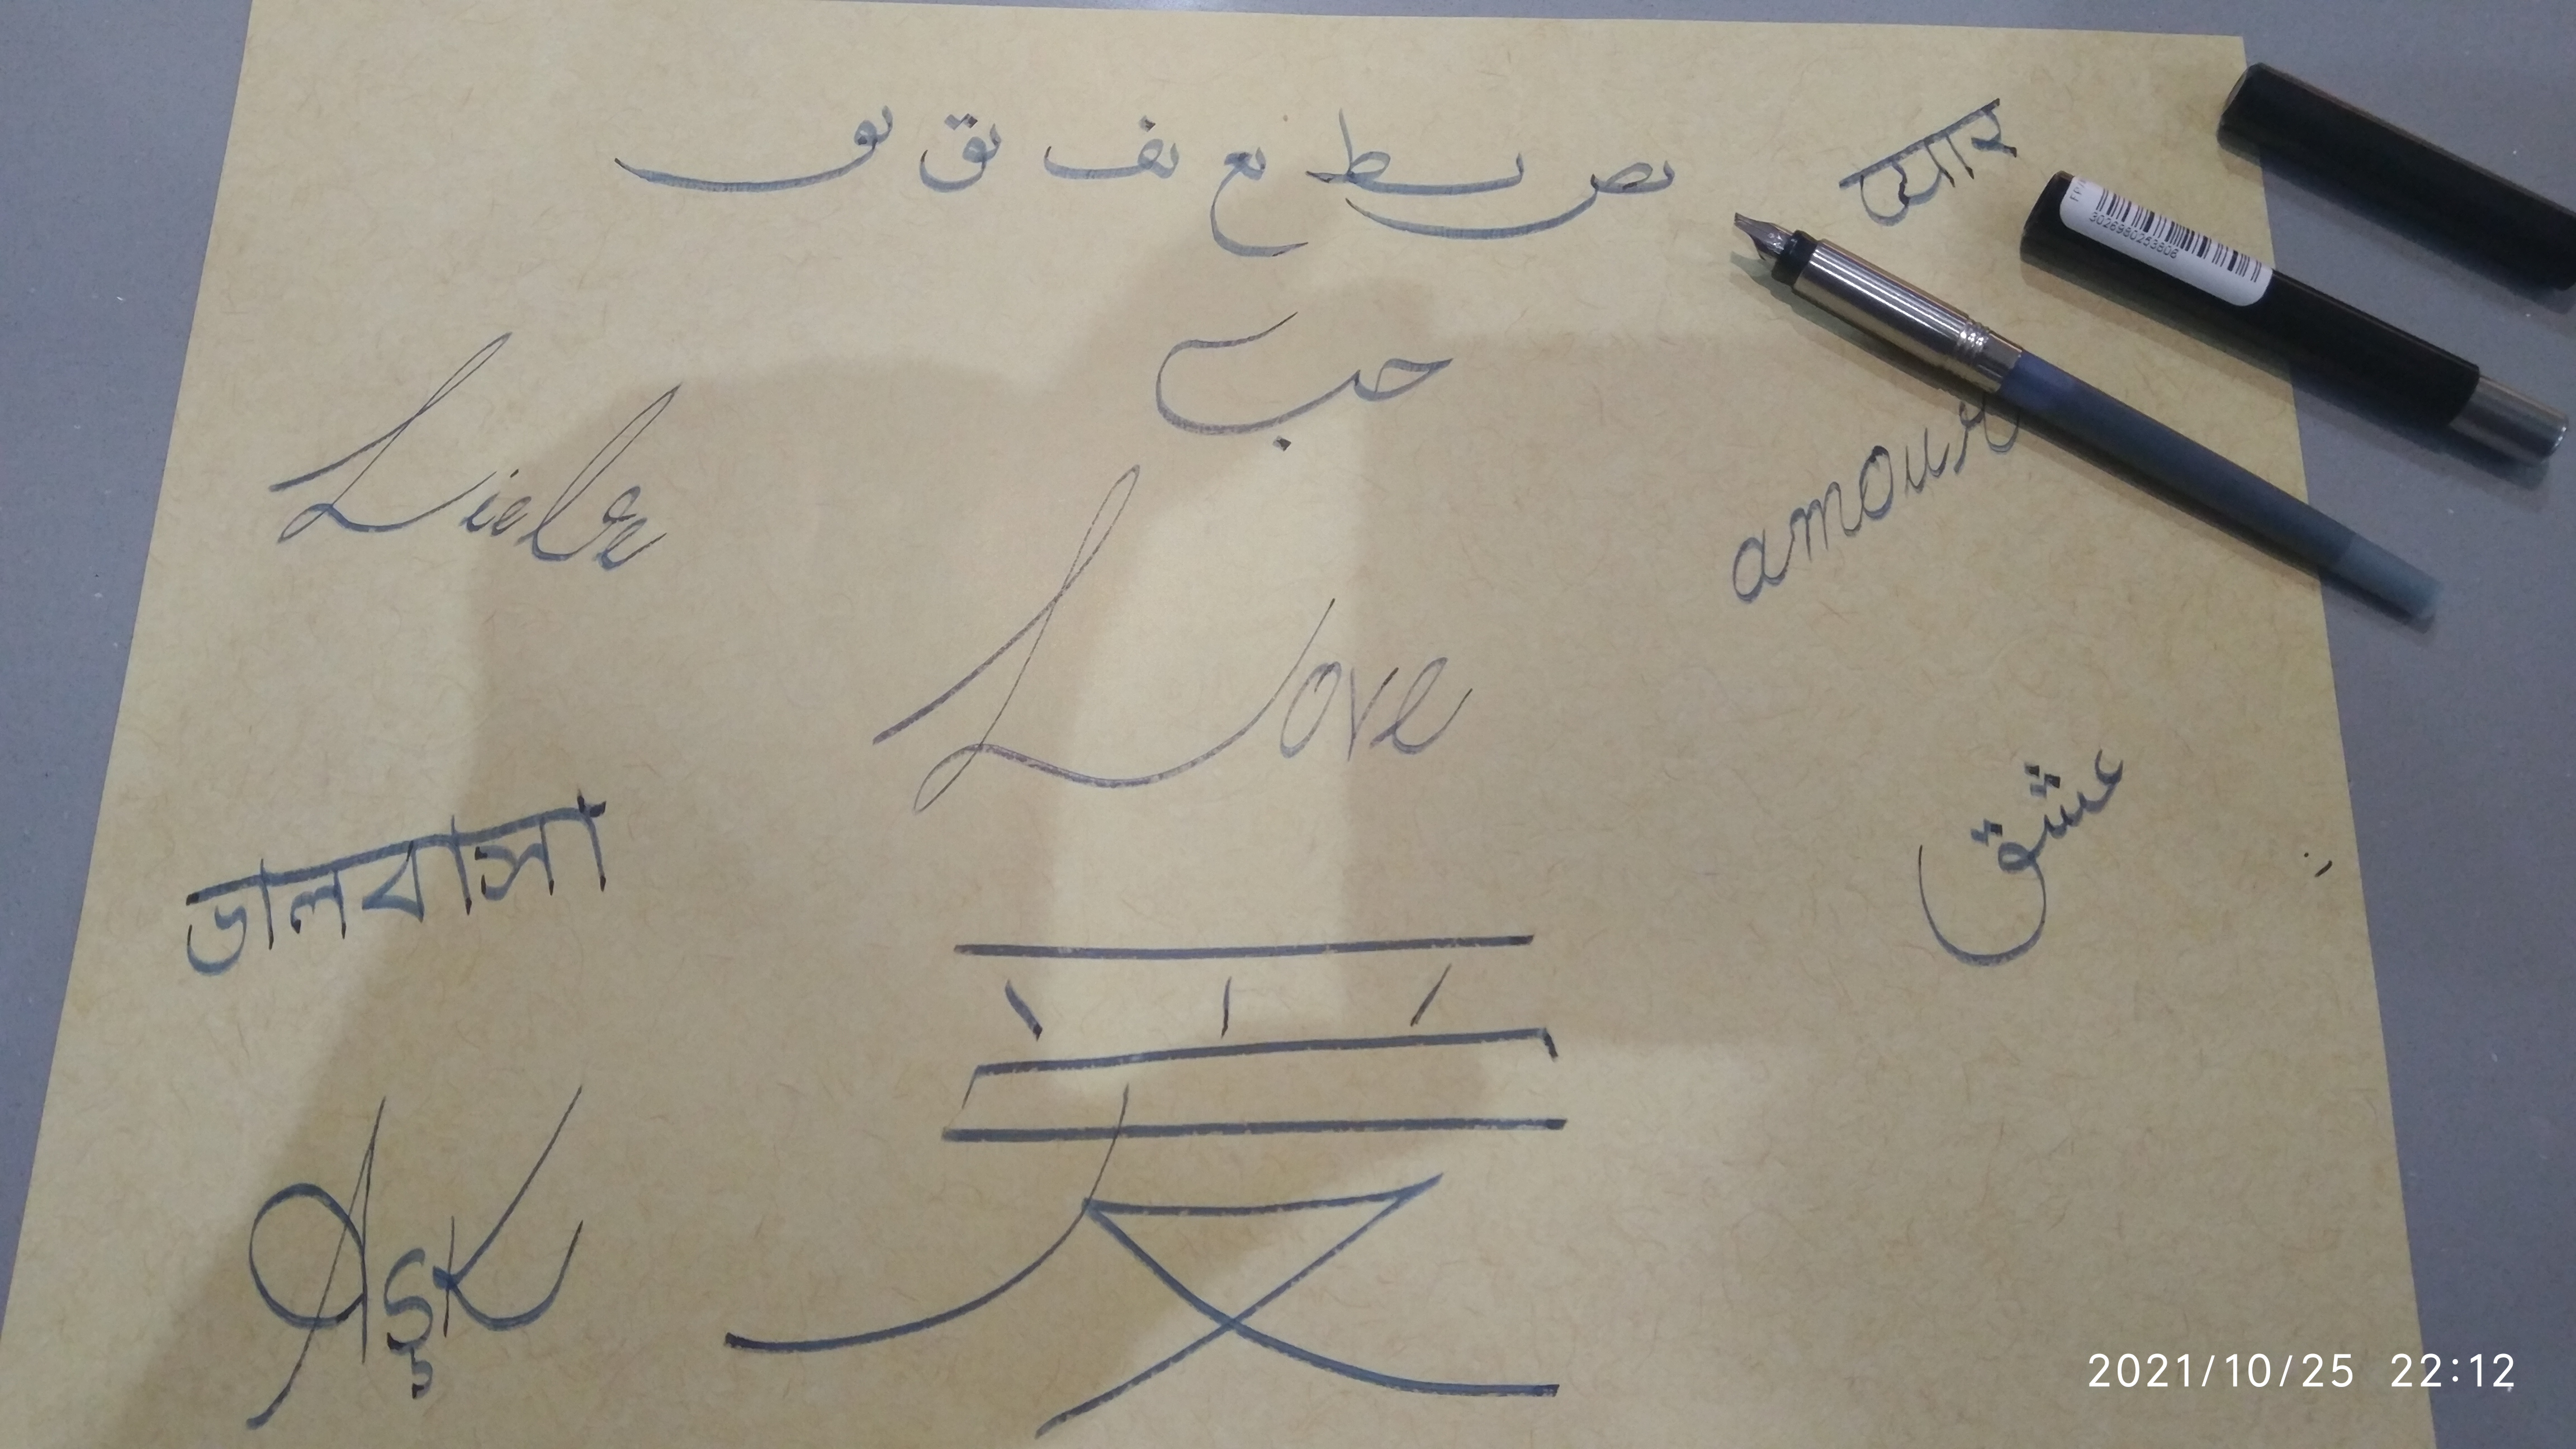 نص نسط نع نف نق نو
प्यार
3026980253808
حب
Liebe
amour
Love
عشق
ভালবাসা
爱
Aşk
2021/10/25 22:12